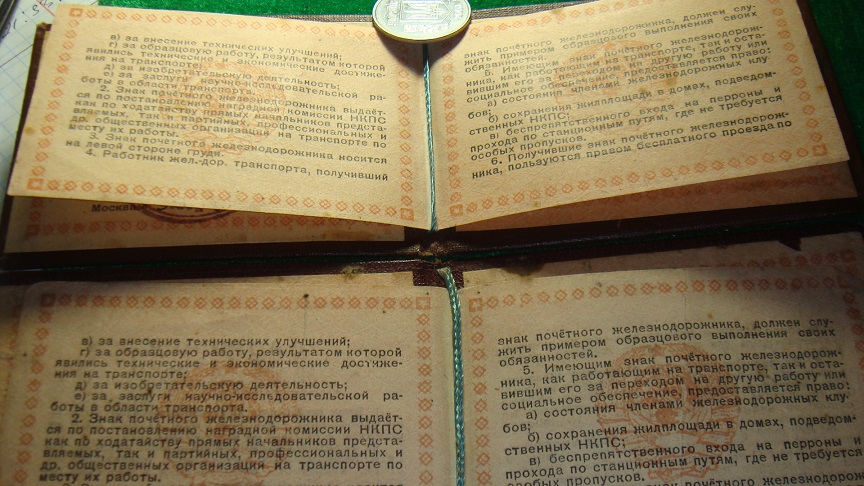 в) за внесение технических улучшений;
г) за образцовую работу, результатом которой
явились технические и экономические достиже-
ния на транспорте;
д) за изобретательскую деятельность;
е) за заслуги научно-исследовательской ра-
боты в области транспорта.
2. Знак почётного железнодорожника выдаёт-
ся по постановлению наградной комиссии НКПС
как по ходатайству прямых начальников предста-
вляемых, так и партийных, профессиональных и
др. общественных организаций на транспорте по
месту их работы.
3. Знак почётного железнодорожника носится
на левой стороне груди.
4. Работник жел-дор. транспорта, получивший
знак почётного железнодорожника, должен слу-
жить примером образцового выполнения своих
обязанностей.
5. Имеющим знак почётного железнодорож-
ника, как работающим на транспорте, так и оста-
вившим его за переходом на другую работу или
социальное обеспечение, предоставляется право:
а) состояния членами железнодорожных клу-
бов;
б) сохранения жилплощади в домах, подведом-
ственных НКПС;
в) беспрепятственного входа на перроны и
прохода по станционным путям, где не требуется
особых пропусков.
6. Получившие знак почётного железнодорож-
ника, пользуются правом бесплатного проезда по
Москва
в) за внесение технических улучшений;
г) за образцовую работу, результатом которой
явились технические и экономические достиже-
ния на транспорте;
д) за изобретательскую деятельность;
е) за заслуги научно-исследовательской ра-
боты в области транспорта.
2. Знак почётного железнодорожника выдаёт-
ся по постановлению наградной комиссии НКПС
как по ходатайству прямых начальников предста-
вляемых, так и партийных, профессиональных и
др. общественных организаций на транспорте по
месту их работы.
знак почётного железнодорожника, должен слу-
жить примером образцового выполнения своих
обязанностей.
5. Имеющим знак почётного железнодорож-
ника, как работающим на транспорте, так и оста-
вившим его за переходом на другую работу или
социальное обеспечение, предоставляется право:
а) состояния членами железнодорожных клу
бов;
б) сохранения жилплощади в домах, подведом-
ственных НКПС;
в) беспрепятственного входа на перроны и
прохода по станционным путям, где не требуется
особых пропусков.